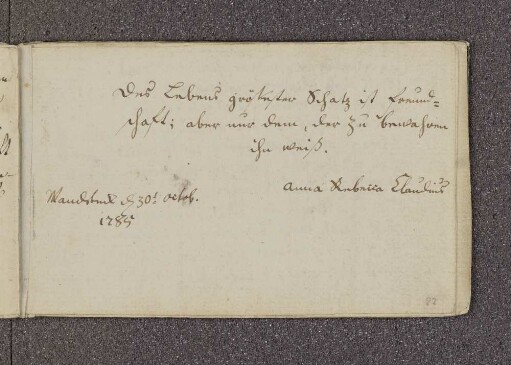 Des Lebens grötester Schatz ist Freund=
schaft; aber nur dem, der zu bewahren
ihn weiß.
Anna Rebecca Claudius
Wandsbeck d 30t octob.
1785
82